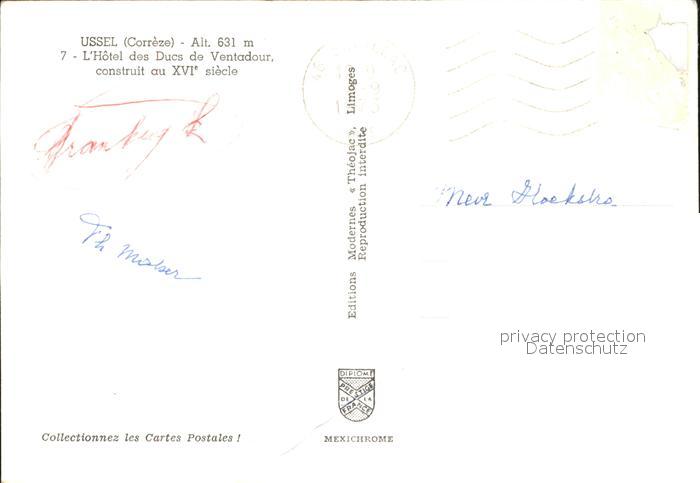 USSEL (Corrèze) - Alt. 631 m
7 - L'Hôtel des Ducs de Ventadour,
construit au XVIᵉ siècle
Th
Editions Modernes « Théojac », Limoges
Reproduction interdite
Mevr
privacy protection
Datenschutz
DIPLOME
PRESTIGE
DE LA
FRANCE
Collectionnez les Cartes Postales !
MEXICHROME